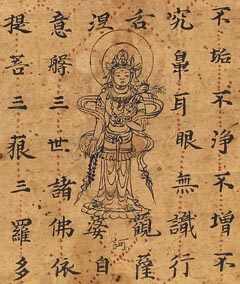 不垢不淨不增不
究鼻耳眼無識行
舌
觀薩
訶
涅
婆自
意解三世諸佛依
提菩三藐三羅多